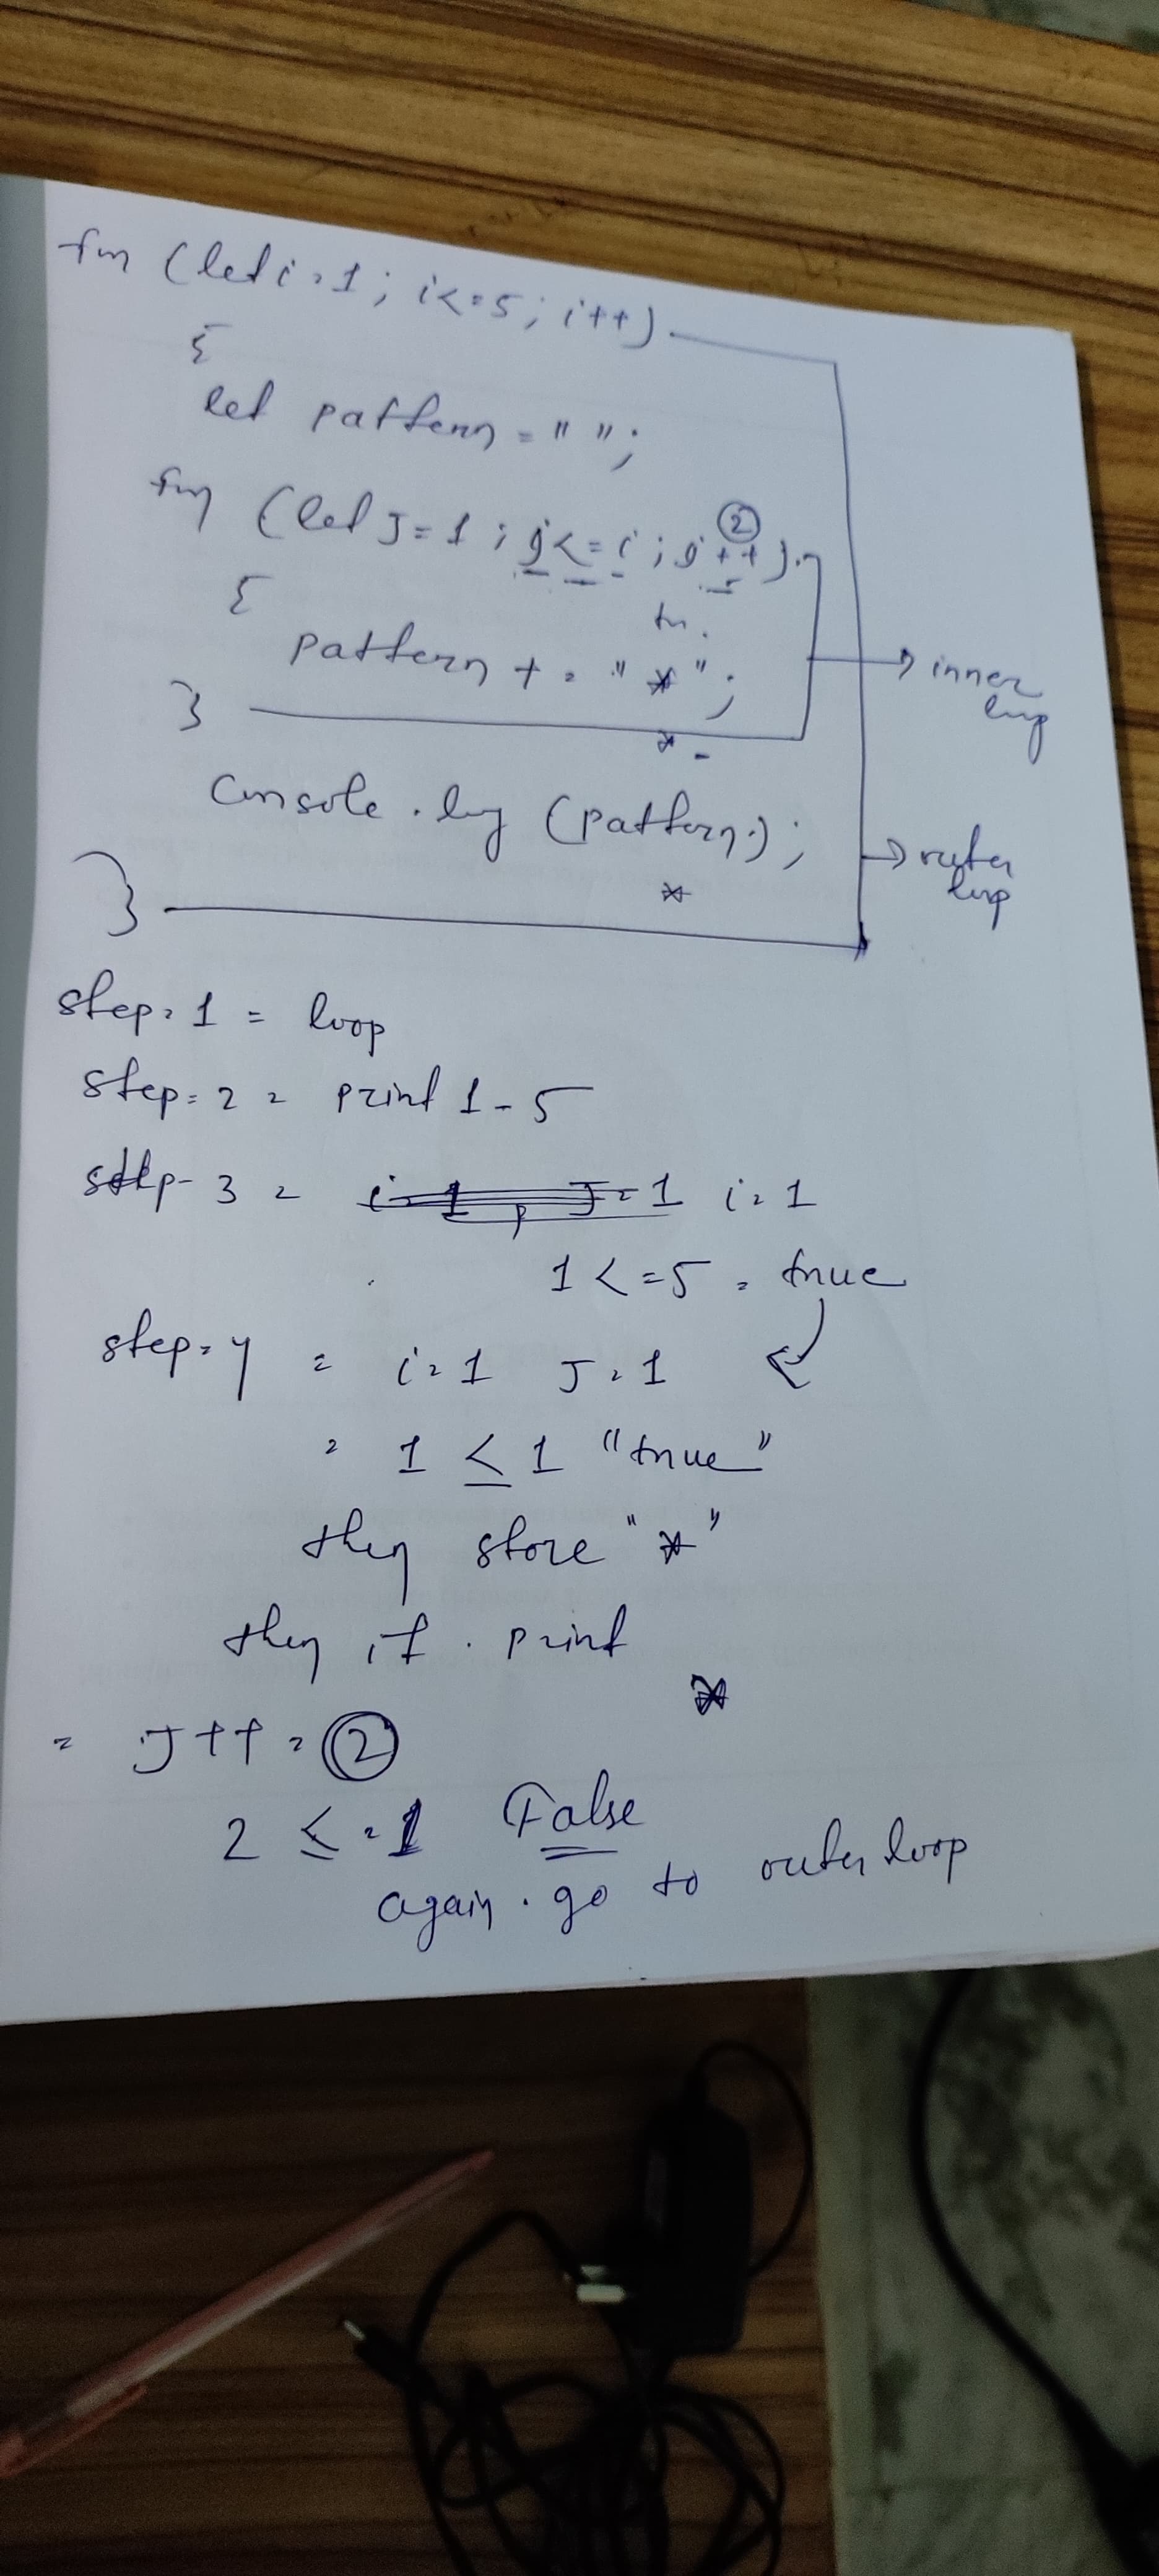 for (let i=1; i<=5; i++)
{
let pattern = " ";
for (let J=1; j<=i; j++)
2
{
pattern += "*";
}
inner loop
*
console.log (pattern);
outer loop
*
}
step=1 = loop
step=2 = print 1-5
step-3 = i=1, J=1 i=1
1<=5 = true
step=4 = i=1 J=1
= 1 ≤ 1 "true"
then store "*"
then it print
*
= J++ = 2
2 <=1 False
again go to outer loop